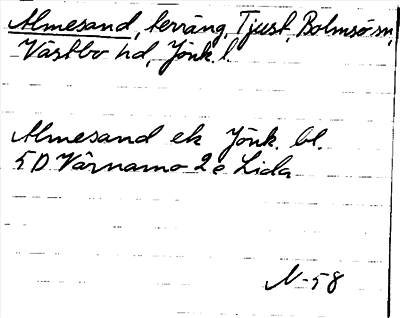 Almesand, terräng, Tjust, Bolmsö sn,
Västbo hd, Jönk. l.
Almesand ek Jönk. bl.
5D Värnamo 2e Lida
N-58